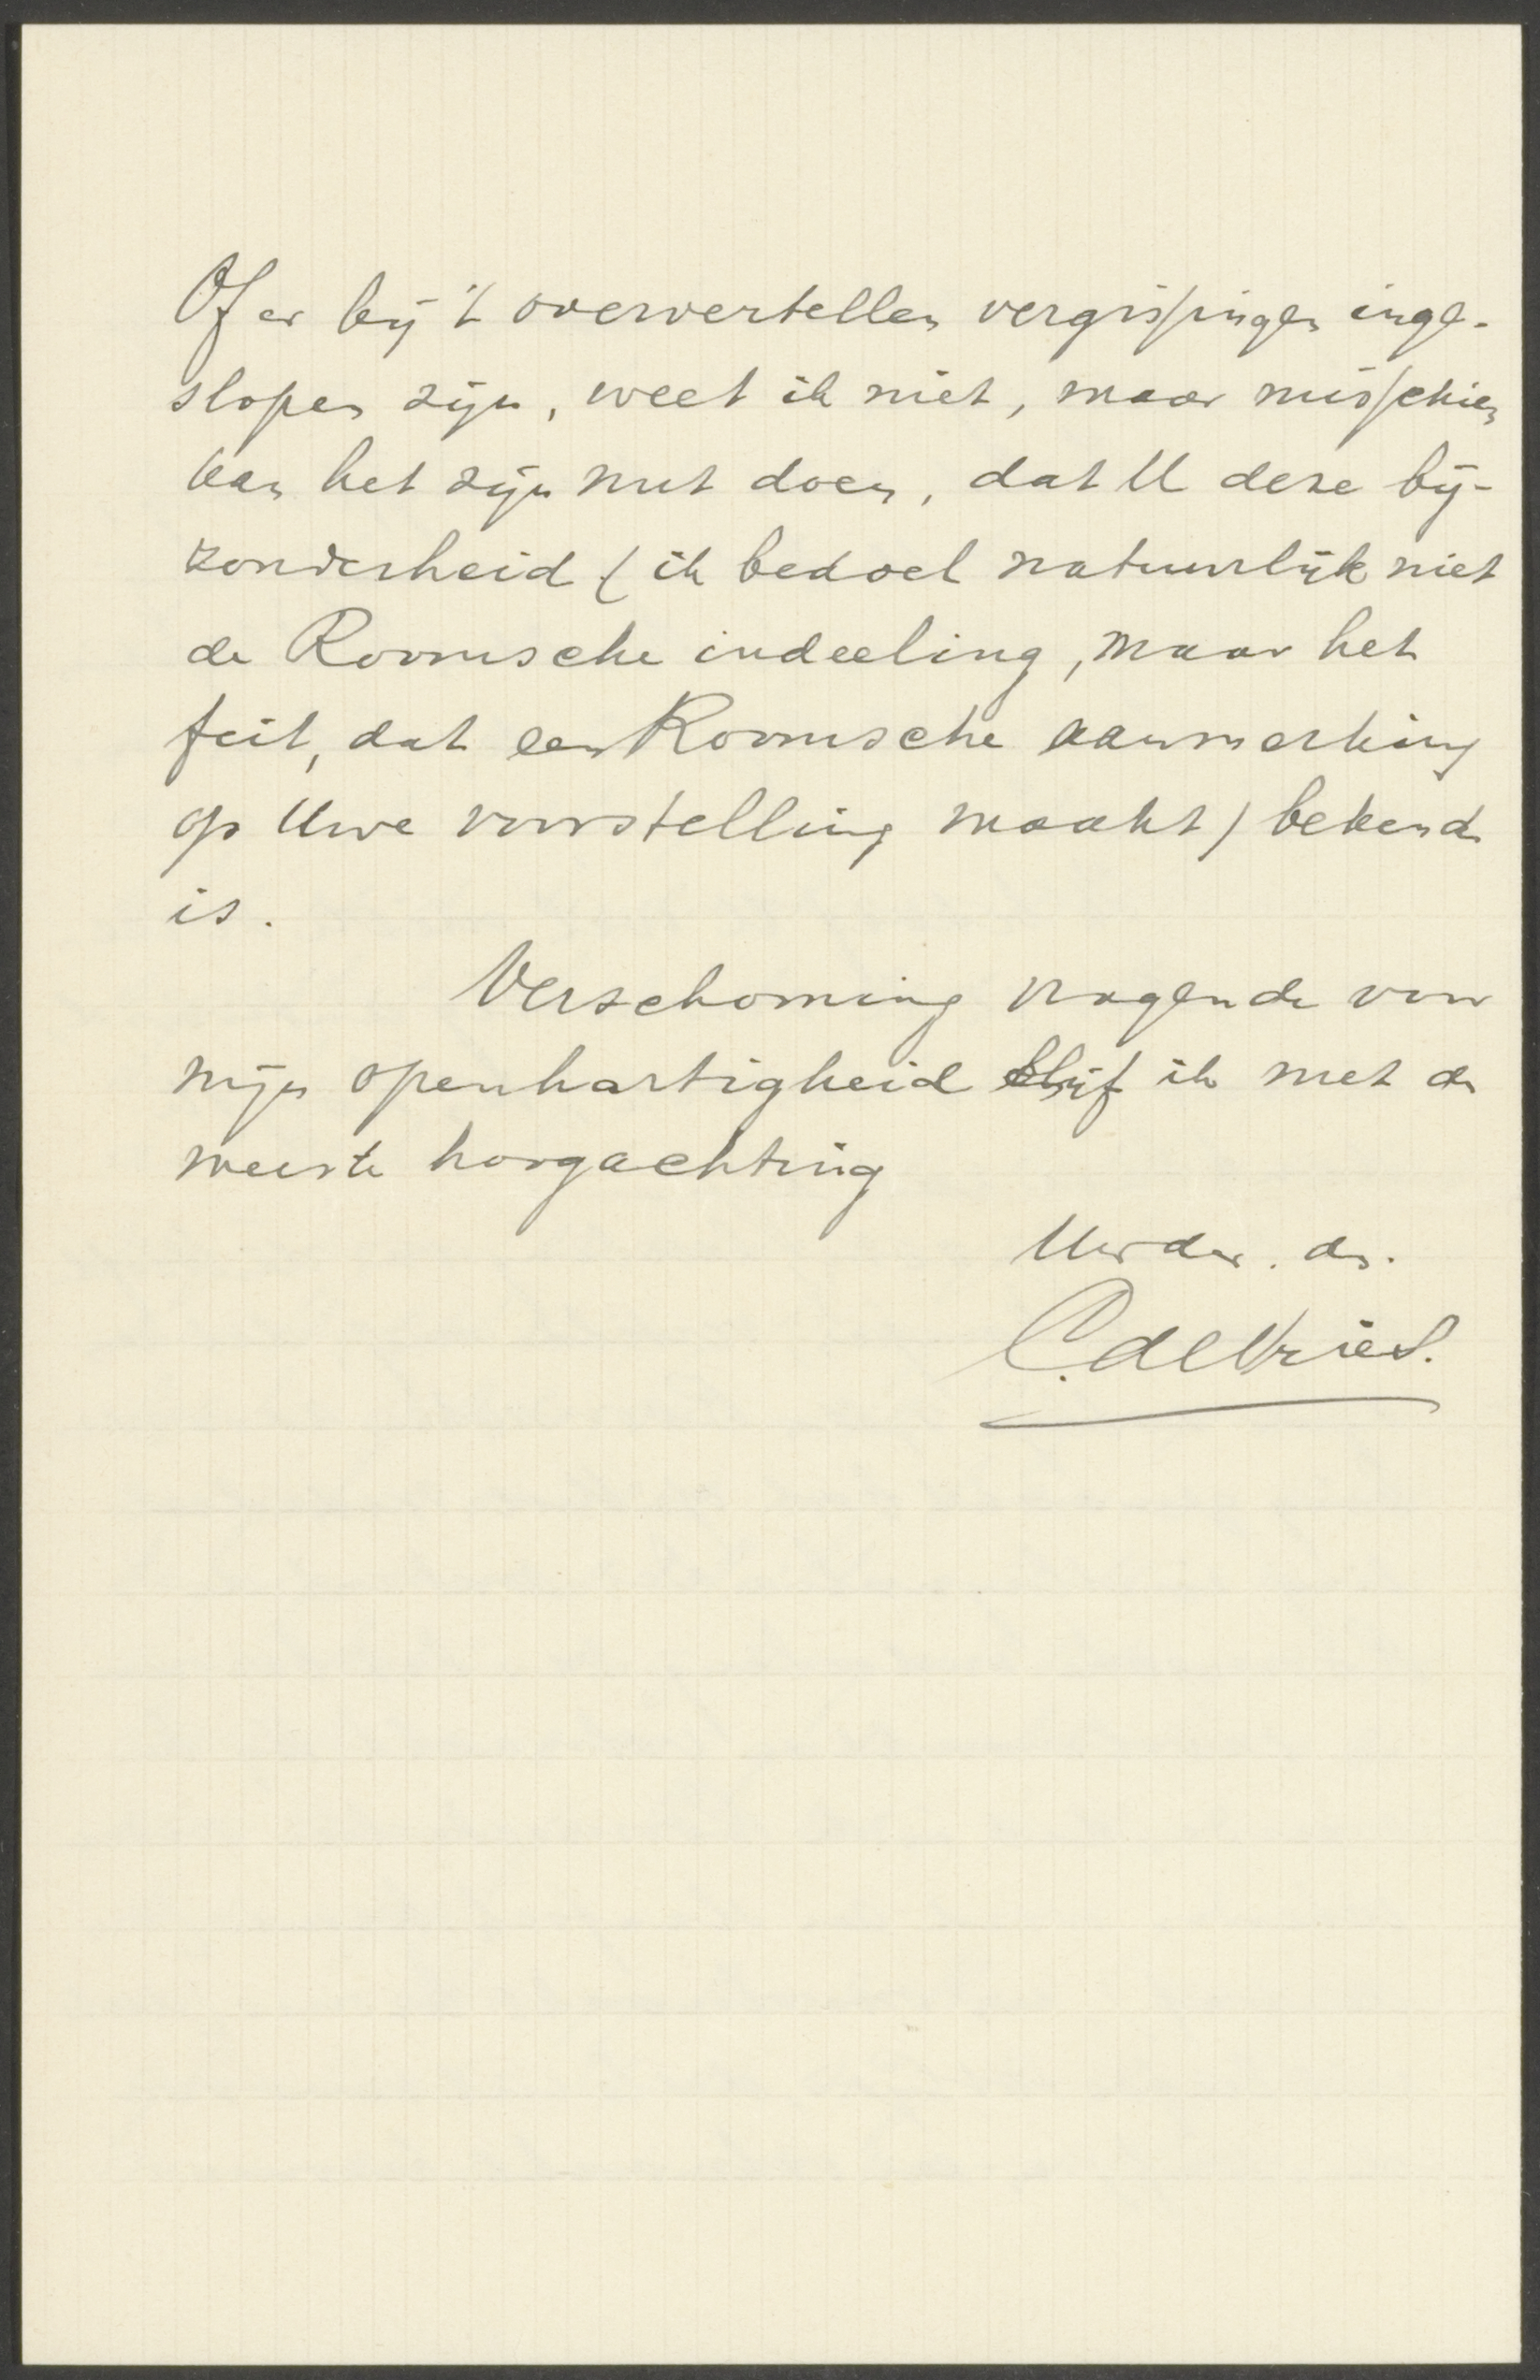 Of er bij 't oververtellen vergissingen inge-
slopen zijn, weet ik niet, maar misschien
kan het zijn nut doen, dat U deze bij-
zonderheid (ik bedoel natuurlijk niet
de Roomsche indeeling, maar het
feit, dat een Roomsche aanmerking
op Uwe voorstelling maakt) bekend
is.
Verschooning vragende voor
mijn openhartigheid blijf ik met de
meeste hoogachting
Uw dw. dr.
C. de Vries.